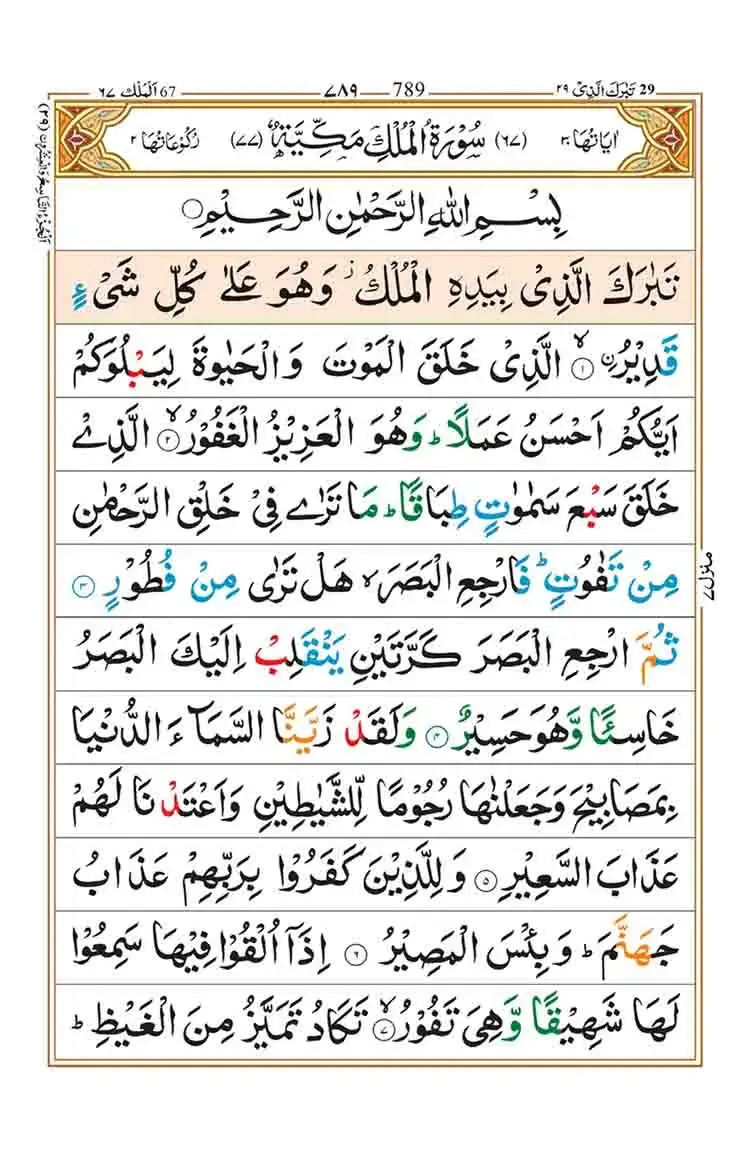 29 تَبٰرَكَ الَّذِىْ ٢٩ 789 ٧٨٩ 67 اَلْمُلْك ٦٧
اٰيَاتُهَا ٣٠ (٦٧) سُوْرَةُ الْمُلْكِ مَكِّيَّةٌ (٧٧) رُكُوْعَاتُهَا ٢
بِسْمِ اللّٰهِ الرَّحْمٰنِ الرَّحِيْمِ
تَبٰرَكَ الَّذِىْ بِيَدِهِ الْمُلْكُ ز وَهُوَ عَلٰى كُلِّ شَىْءٍ
قَدِيْرُ ۨ ۙ ١ الَّذِىْ خَلَقَ الْمَوْتَ وَالْحَيٰوةَ لِيَبْلُوَكُمْ
اَيُّكُمْ اَحْسَنُ عَمَلًا ؕ وَهُوَ الْعَزِيْزُ الْغَفُوْرُ ۙ ٢ الَّذِىْ
خَلَقَ سَبْعَ سَمٰوٰتٍ طِبَاقًا ؕ مَا تَرٰى فِىْ خَلْقِ الرَّحْمٰنِ
مِنْ تَفٰوُتٍ ؕ فَارْجِعِ الْبَصَرَ ۙ هَلْ تَرٰى مِنْ فُطُوْرٍ ٣
ثُمَّ ارْجِعِ الْبَصَرَ كَرَّتَيْنِ يَنْقَلِبْ اِلَيْكَ الْبَصَرُ
خَاسِئًا وَّهُوَ حَسِيْرٌ ٤ وَلَقَدْ زَيَّنَّا السَّمَآءَ الدُّنْيَا
بِمَصَابِيْحَ وَجَعَلْنٰهَا رُجُوْمًا لِّلشَّيٰطِيْنِ وَاَعْتَدْنَا لَهُمْ
عَذَابَ السَّعِيْرِ ٥ وَلِلَّذِيْنَ كَفَرُوْا بِرَبِّهِمْ عَذَابُ
جَهَنَّمَ ؕ وَبِئْسَ الْمَصِيْرُ ٦ اِذَآ اُلْقُوْا فِيْهَا سَمِعُوْا
لَهَا شَهِيْقًا وَّهِىَ تَفُوْرُ ۙ ٧ تَكَادُ تَمَيَّزُ مِنَ الْغَيْظِ ؕ
منزل ٧
اَلْجُزْءُ التَّاسِعُ وَالْعِشْرُوْنَ (٢٩)